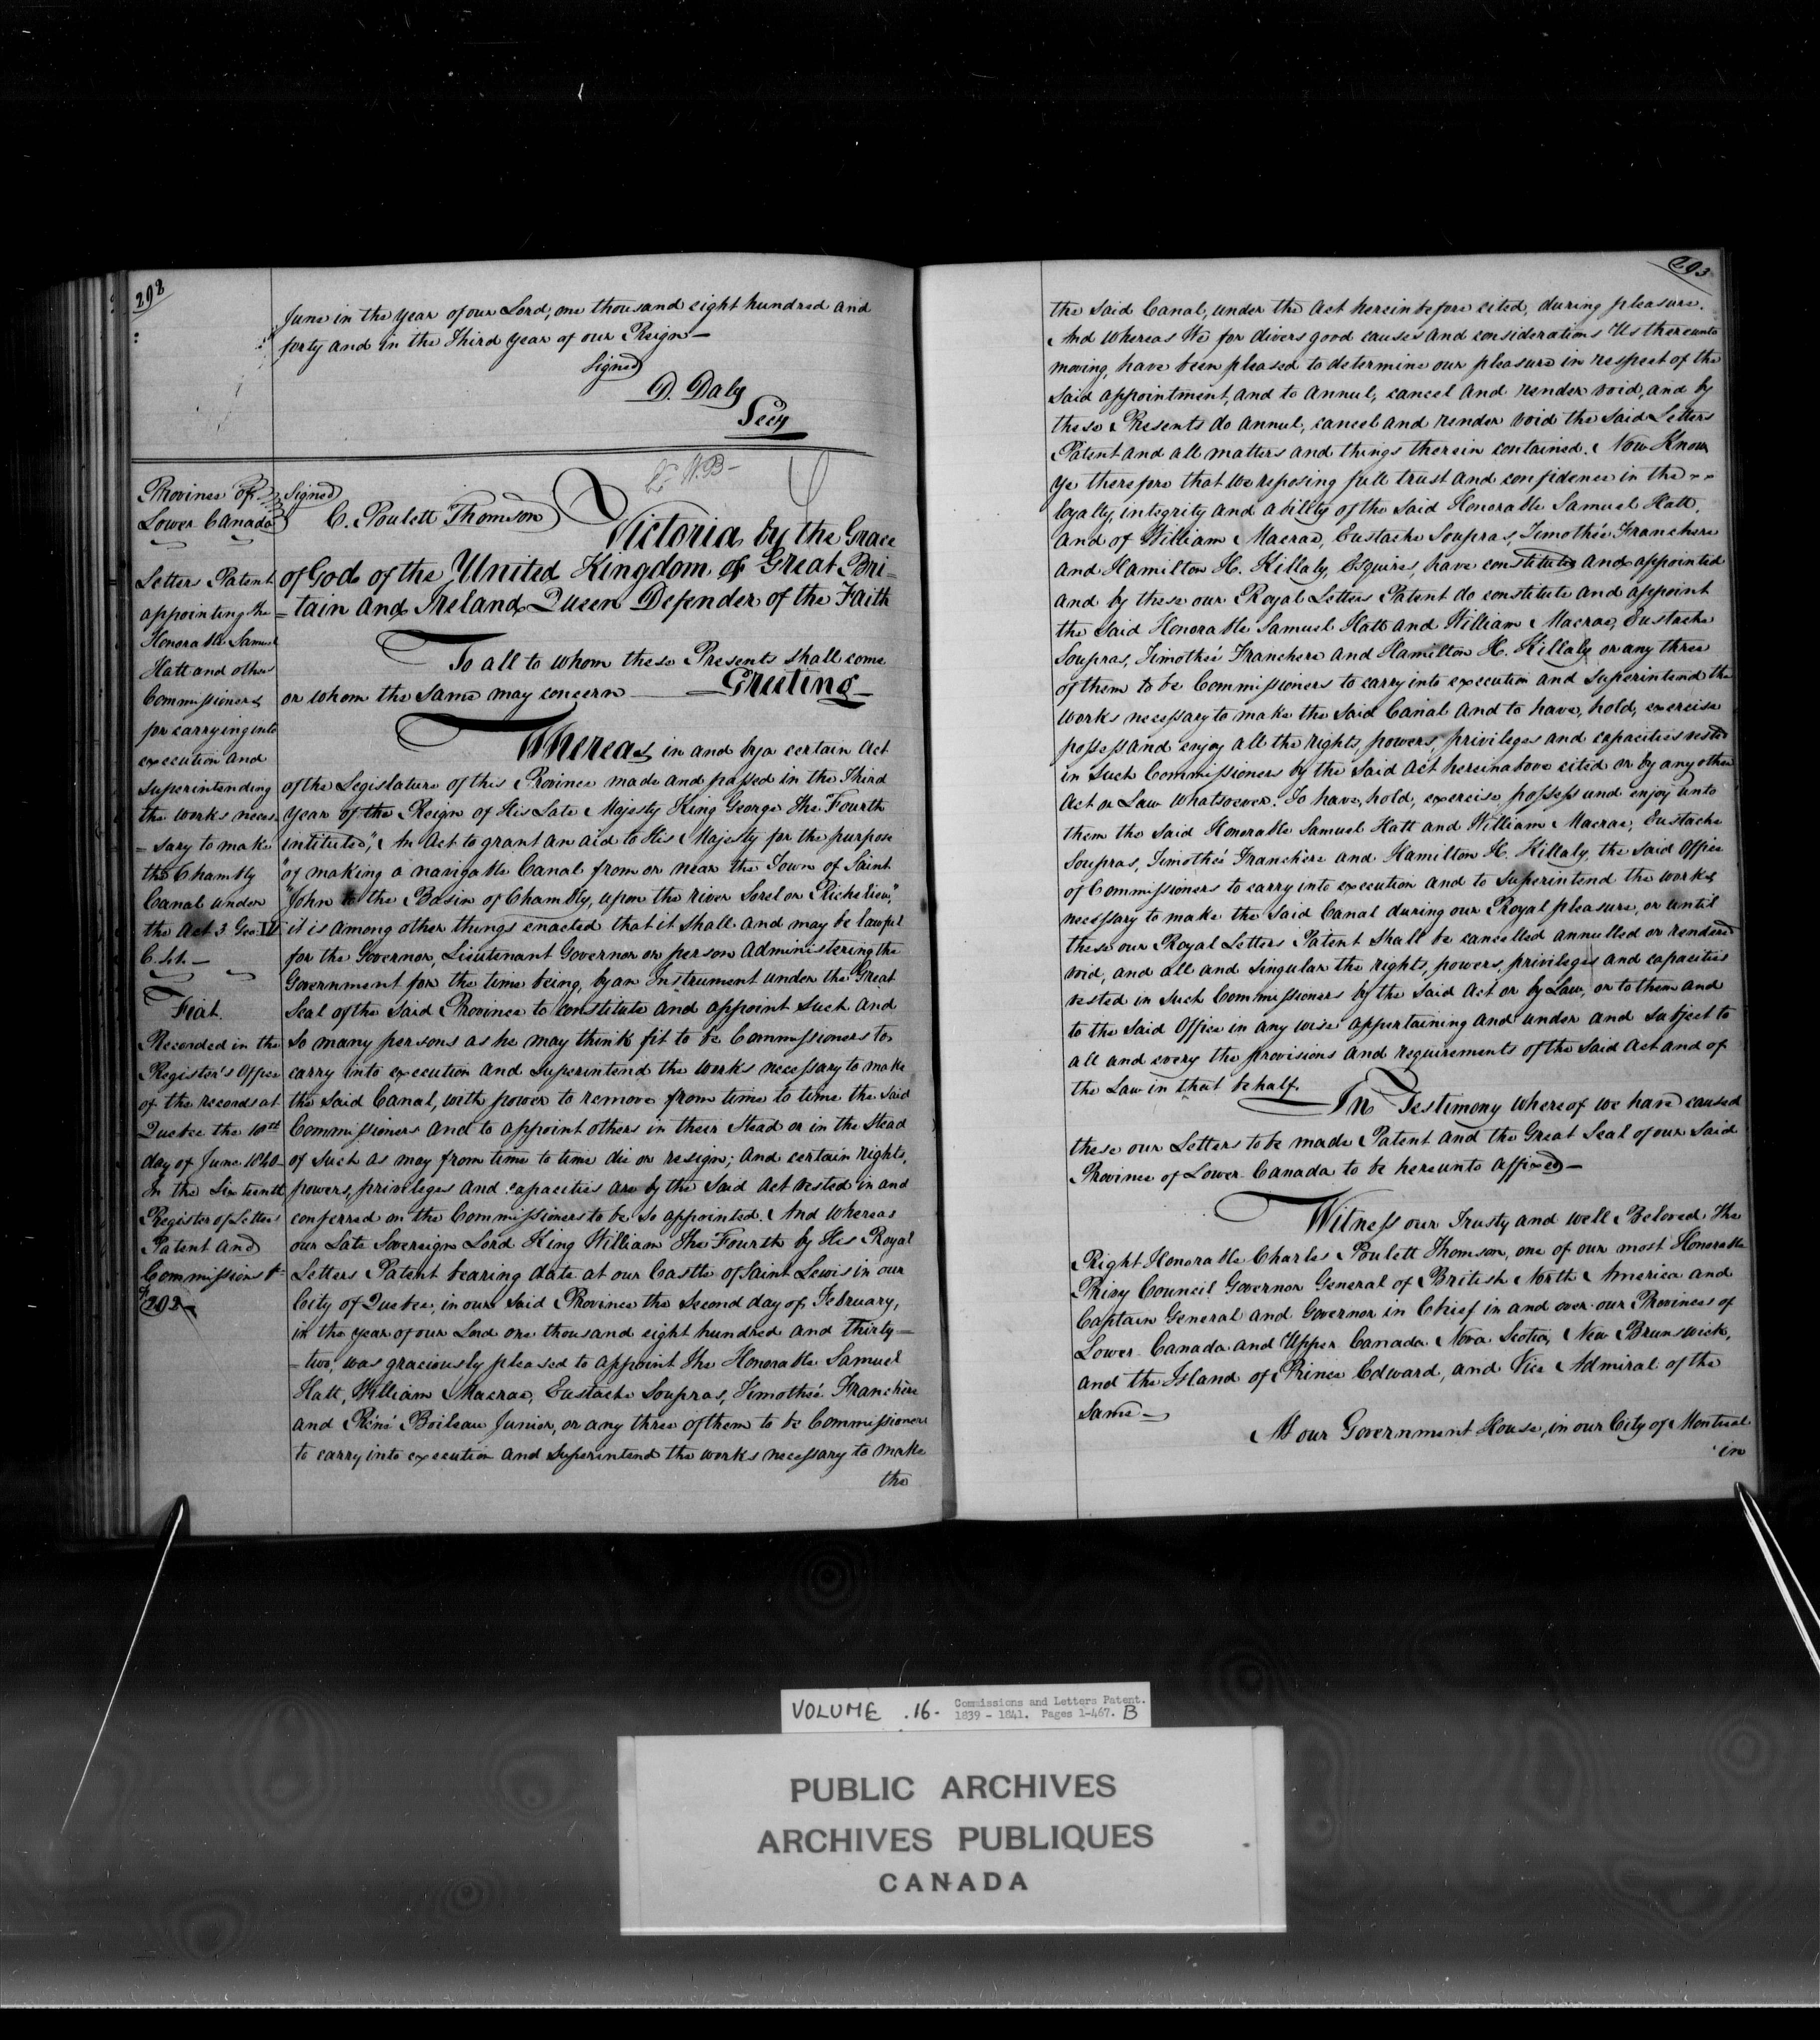 292
June in the year of our Lord, one thousand eight hundred and
forty and in the Third year of our Reign —
Signed
D. Daly
Secy
Province of
Lower Canada
Letters Patent
appointing the
Honorable Samuel
Hatt and others
Commissioners
for carrying into
execution and
superintending
the works neces
= sary to make
the Chambly
Canal under
the Act 3 Geo: IV
C. 41. —
Fiat.
Recorded in the
Register's Office
of the records at
Quebec the 10th
day of June 1840
In the Sixteenth
Register of Letters
Patent and
Commissions
292
Signed
C. Poulett Thomson
Victoria by the Grace
of God of the United Kingdom of Great Bri=
=tain and Ireland Queen Defender of the Faith
To all to whom these Presents shall come
or whom the same may concern — Greeting —
Whereas in and by a certain Act
of the Legislature of this Province made and passed in the Third
year of the Reign of His Late Majesty King George the Fourth
intituled, "An Act to grant an aid to His Majesty for the purpose
"of making a navigable Canal from or near the Town of Saint
"John to the Basin of Chambly, upon the river Sorel or Richelieu,"
it is among other things enacted that it shall and may be lawful
for the Governor, Lieutenant Governor or person Administering the
Government for the time being, by an Instrument under the Great
Seal of the said Province to constitute and appoint such and
so many persons as he may think fit to be Commissioners to
carry into execution and superintend the works necessary to make
the said Canal, with power to remove from time to time the said
Commissioners and to appoint others in their Stead or in the Stead
of such as may from time to time die or resign; and certain rights,
powers, privileges and capacities are by the said Act vested in and
conferred on the Commissioners to be so appointed. And whereas
our Late Sovereign Lord King William the Fourth by His Royal
Letters Patent bearing date at our Castle of Saint Lewis in our
City of Quebec, in our said Province the Second day of February,
in the year of our Lord one thousand eight hundred and thirty=
= two, was graciously pleased to appoint the Honorable Samuel
Hatt, William Macrae, Eustache Soupras, Timothée Franchère
and Réné Boileau Junior, or any three of them to be Commissioners
to carry into execution and superintend the works necessary to make
the
293
the said Canal, under the Act hereinbefore cited, during pleasure.
And whereas We for divers good causes and considerations Us thereunto
moving, have been pleased to determine our pleasure in respect of the
said appointment, and to annul, cancel and render void, and by
these Presents do annul, cancel and render void the said Letters
Patent and all matters and things therein contained. Now Know
ye therefore that we reposing full trust and confidence in the
loyalty, integrity and ability of the said Honorable Samuel Hatt,
and of William Macrae, Eustache Soupras, Timothée Franchere
and Hamilton H. Killaly, Esquires, have constituted and appointed
and by these our Royal Letters Patent do constitute and appoint
the said Honorable Samuel Hatt and William Macrae, Eustache
Soupras, Timothée Franchere and Hamilton H. Killaly or any three
of them to be Commissioners to carry into execution and superintend the
works necessary to make the said Canal and to have, hold, exercise
possess and enjoy all the rights, powers, privileges and capacities vested
in such Commissioners by the said Act hereinabove cited or by any other
Act or Law whatsoever. To have, hold, exercise, possess and enjoy unto
them the said Honorable Samuel Hatt and William Macrae, Eustache
Soupras, Timothée Franchère and Hamilton H. Killaly, the said Office
of Commissioners to carry into execution and to superintend the works
necessary to make the said Canal during our Royal pleasure, or until
these our Royal Letters Patent shall be cancelled annulled or rendered
void, and all and singular the rights, powers, privileges and capacities
vested in such Commissioners by the said Act or by Law, or to them and
to the said Office in any wise appertaining and under and subject to
all and every the provisions and requirements of the said Act and of
the Law in that behalf.
In Testimony whereof we have caused
these our Letters to be made Patent and the Great Seal of our said
Province of Lower Canada to be hereunto affixed —
Witness our Trusty and well Beloved The
Right Honorable Charles Poulett Thomson, one of our most Honorable
Privy Council Governor General of British North America and
Captain General and Governor in Chief in and over our Provinces of
Lower Canada and Upper Canada Nova Scotia, New Brunswick,
and the Island of Prince Edward, and Vice Admiral of the
same —
At our Government House, in our City of Montreal
in
VOLUME .16. Commissions and Letters Patent.
1839 - 1841. Pages 1-467. B
PUBLIC ARCHIVES
ARCHIVES PUBLIQUES
CANADA